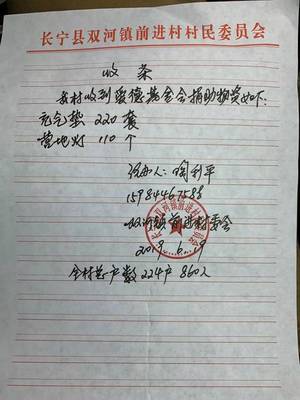 长宁县双河镇前进村村民委员会
收条
我村收到爱德基金会捐助物资如下:
充气垫 220套
营地灯 110个
经办人:陶利平
双河镇前进村委会
2019.6.19
全村总户数224户 860人